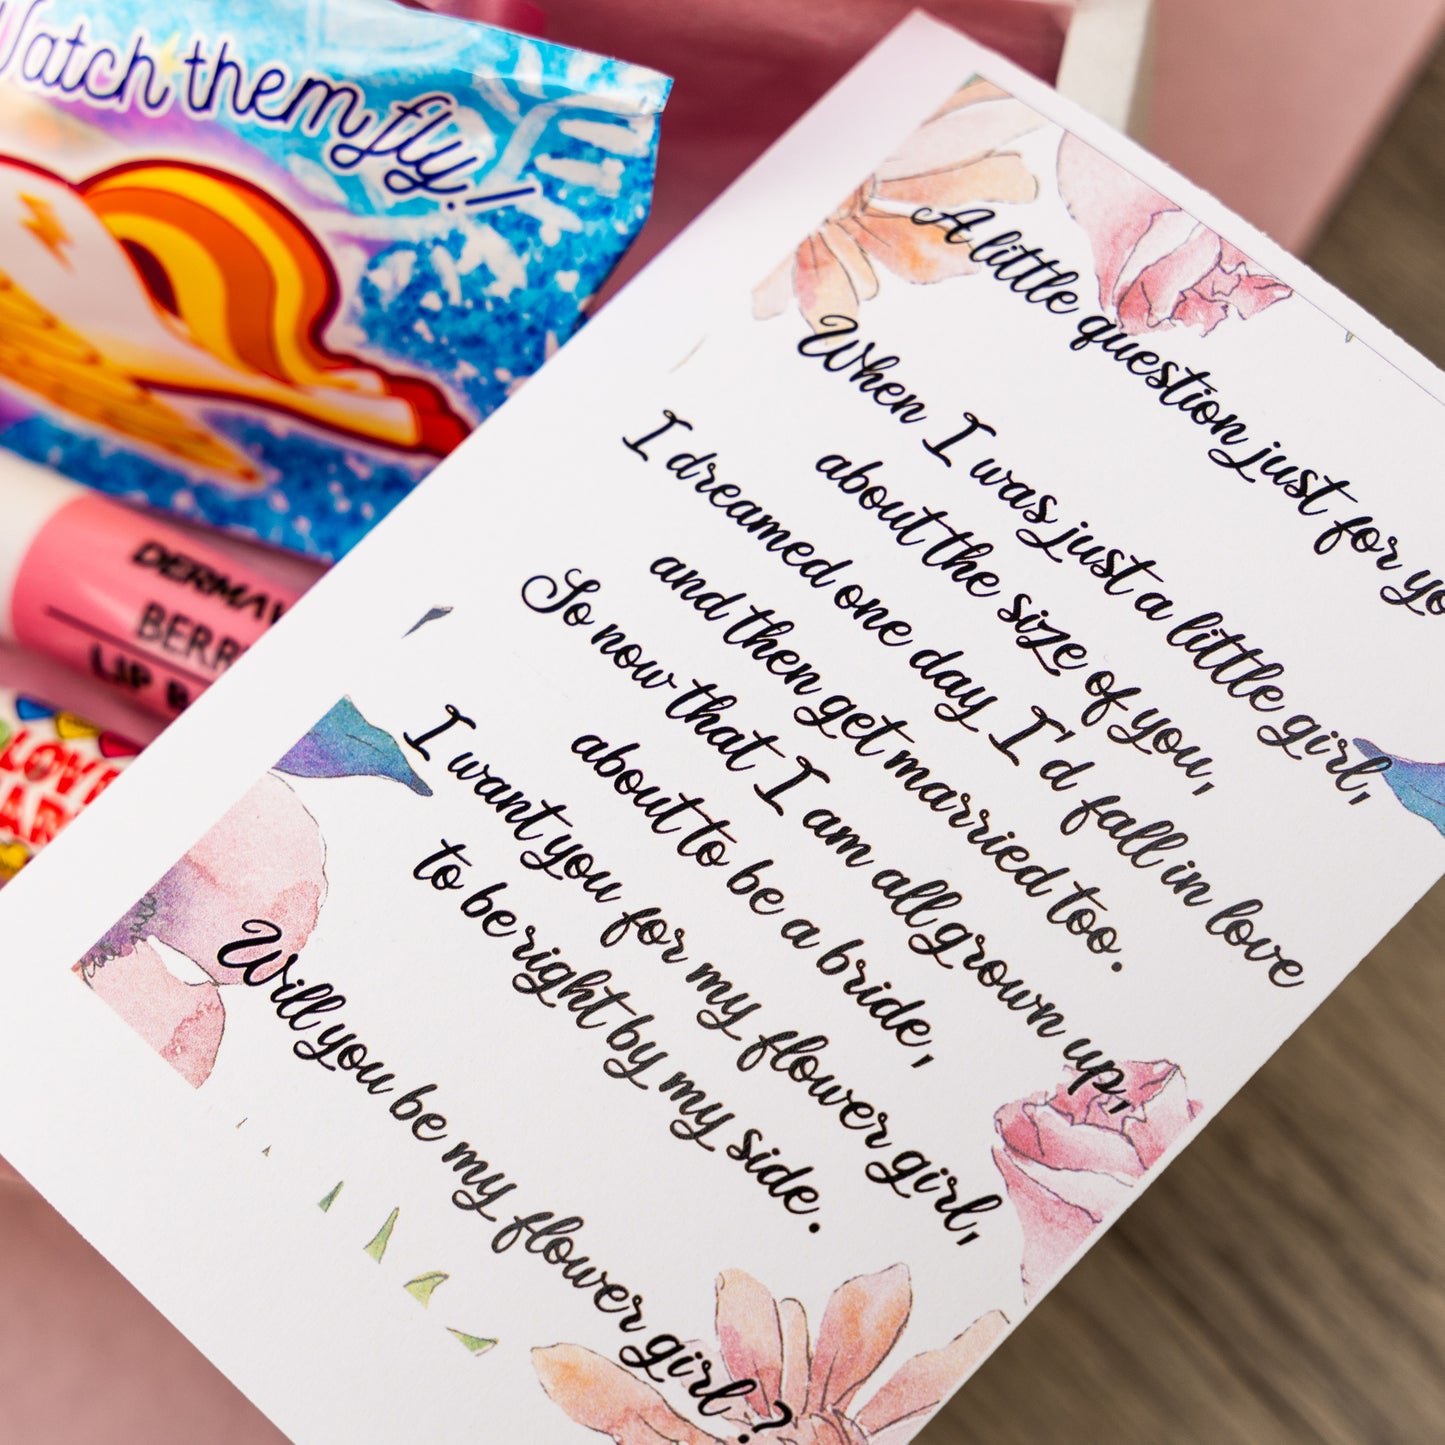 Watch them fly!
DERMAV
BERR
LIP B
LOVE
A little question just for yo
When I was just a little girl,
about the size of you,
I dreamed one day I'd fall in love
and then get married too.
So now that I am all grown up,
about to be a bride,
I want you for my flower girl,
to be right by my side.
Will you be my flower girl?